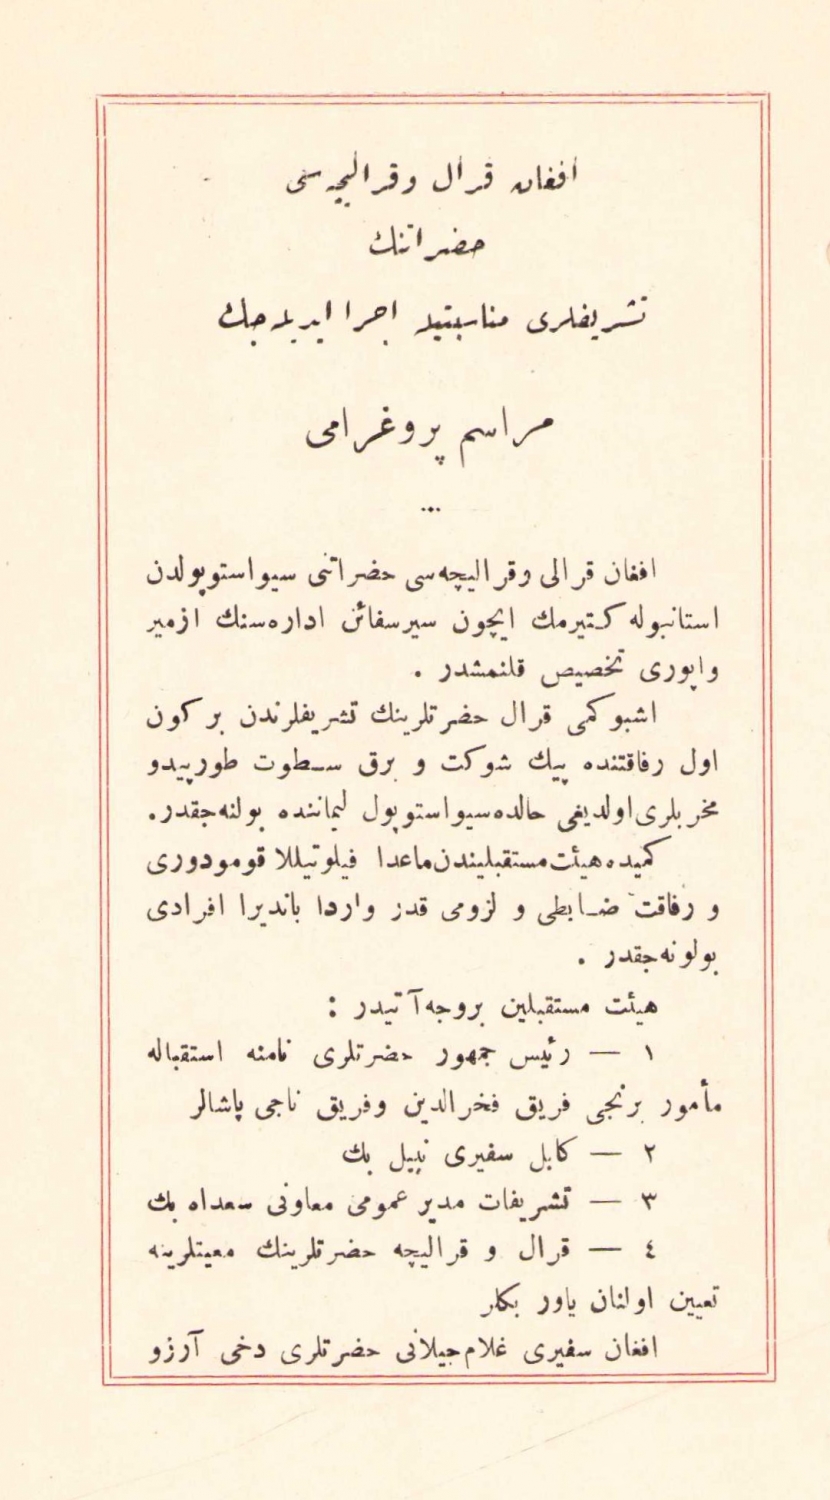 افغان قرال وقراليچه‌سى
حضراتنك
تشريفلرى مناسبتيله اجرا ايديله‌جك
مراسم پروغرامى
...
افغان قرالى وقراليچه‌سى حضراتنى سيواستوپولدن
استانبوله كتيرمك ايچون سيرسفائن اداره‌سنك ازمير
واپورى تخصيص قلنمشدر .
اشبو كمى قرال حضرتلرينك تشريفلرندن بر كون
اول رفاقتنده پيك شوكت و برق سطوت طورپيدو
مخربلرى اولديغى حالده سيواستوپول ليماننده بولنه‌جقدر.
كميده هيئت مستقبليندن ماعدا فيلوتيللا قومودورى
و رفاقت ضابطى و لزومى قدر واردا بانديرا افرادى
بولونه‌جقدر .
هيئت مستقبلين بروجه آتيدر :
١ — رئيس جمهور حضرتلرى نامنه استقباله
مأمور برنجى فريق فخرالدين وفريق ناجى پاشالر
٢ — كابل سفيرى نبيل بك
٣ — تشريفات مدير عمومى معاونى سعداه بك
٤ — قرال و قراليچه حضرتلرينك معيتلرينه
تعيين اولنان ياور بكلر
افغان سفيرى غلام جيلانى حضرتلرى دخى آرزو